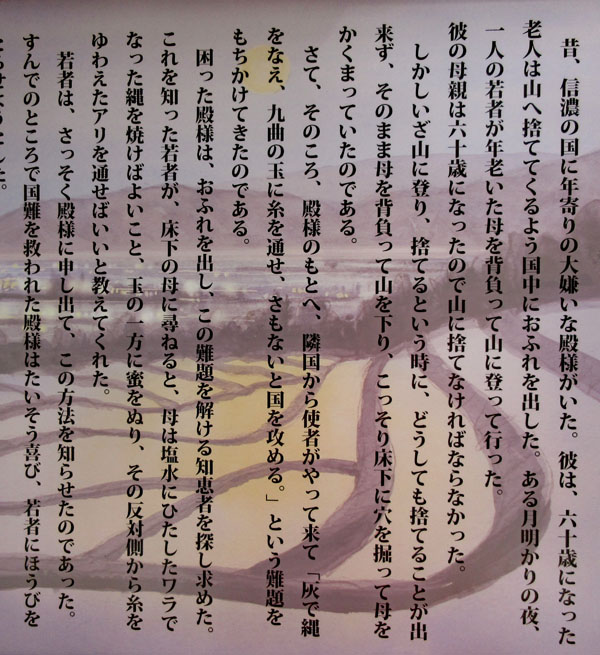 昔、信濃の国に年寄りの大嫌いな殿様がいた。彼は、六十歳になった
老人は山へ捨ててくるよう国中におふれを出した。ある月明かりの夜、
一人の若者が年老いた母を背負って山に登って行った。
彼の母親は六十歳になったので山に捨てなければならなかった。
しかしいざ山に登り、捨てるという時に、どうしても捨てることが出
来ず、そのまま母を背負って山を下り、こっそり床下に穴を掘って母を
かくまっていたのである。
さて、そのころ、殿様のもとへ、隣国から使者がやって来て「灰で縄
をなえ、九曲の玉に糸を通せ、さもないと国を攻める。」という難題を
もちかけてきたのである。
困った殿様は、おふれを出し、この難題を解ける知恵者を探し求めた。
これを知った若者が、床下の母に尋ねると、母は塩水にひたしたワラで
なった縄を焼けばよいこと、玉の一方に蜜をぬり、その反対側から糸を
ゆわえたアリを通せばいいと教えてくれた。
若者は、さっそく殿様に申し出て、この方法を知らせたのであった。
すんでのところで国難を救われた殿様はたいそう喜び、若者にほうびを